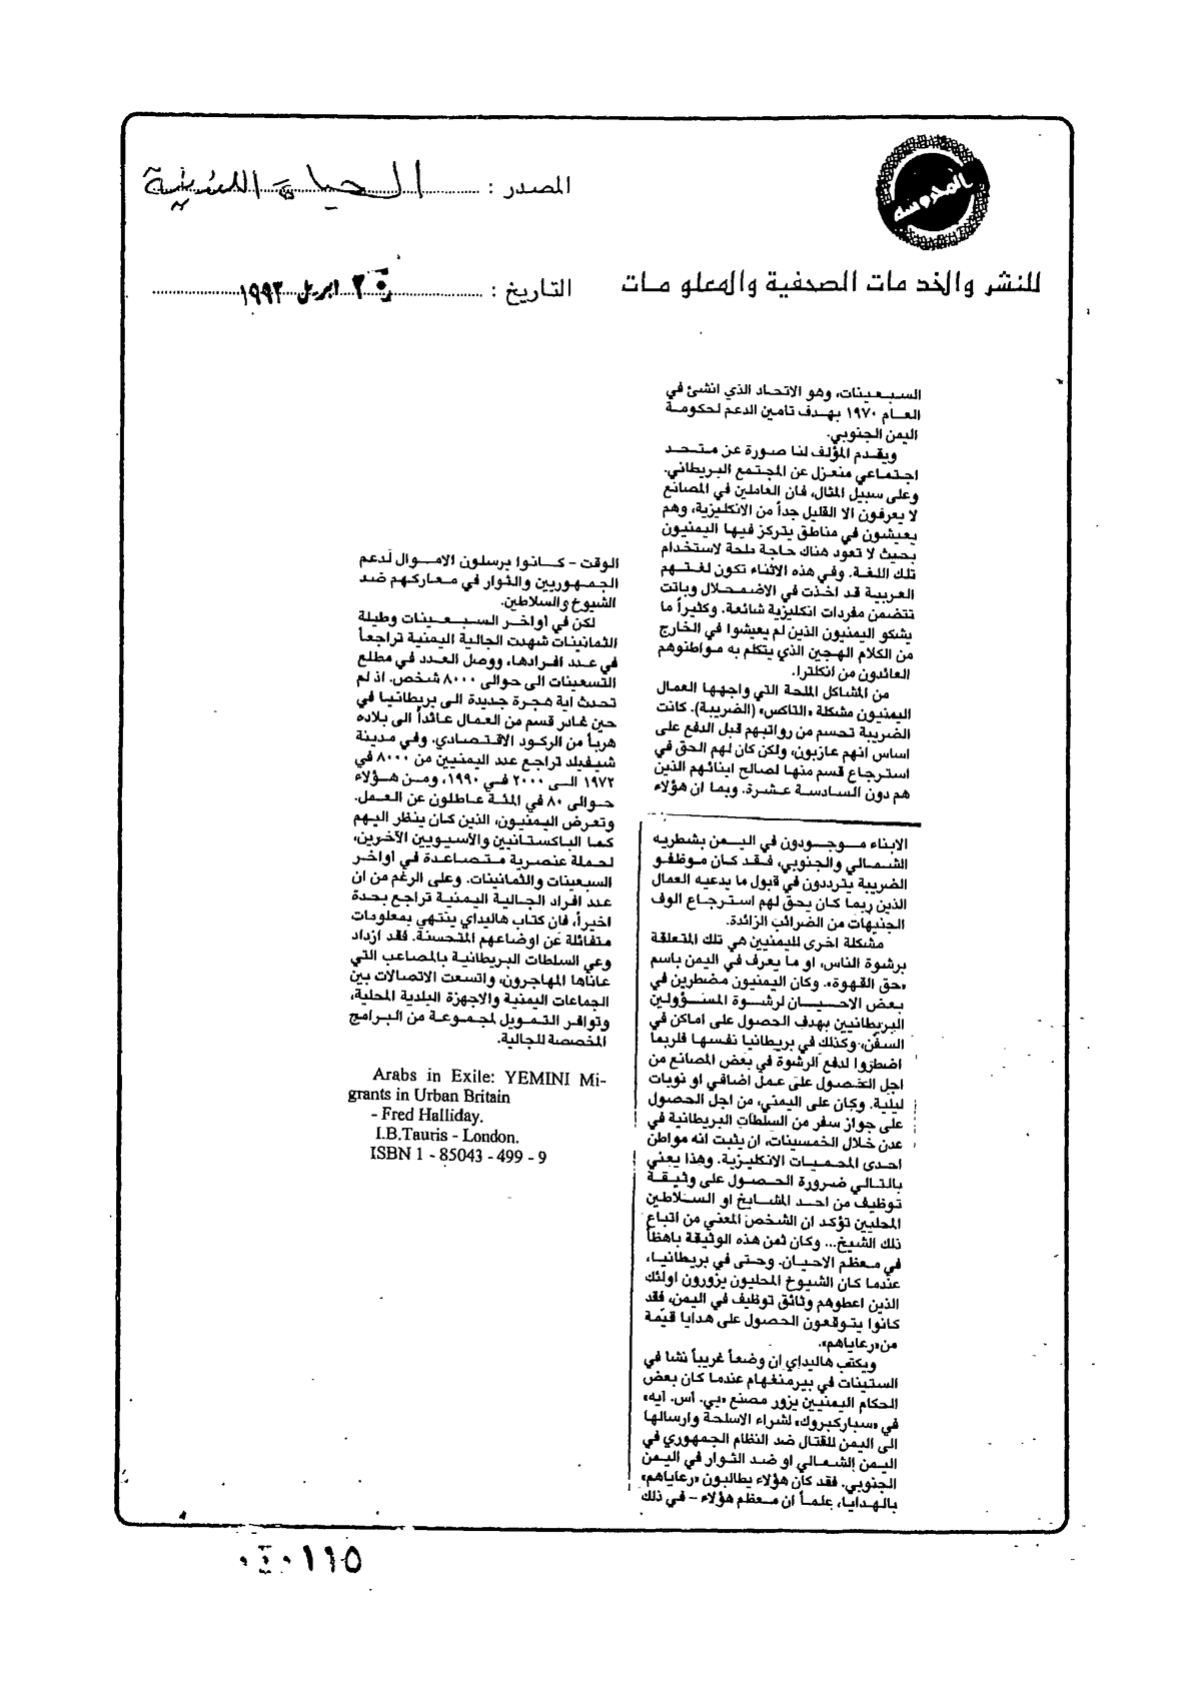 المحروسة
للنشر والخدمات الصحفية والمعلومات
المصدر : الحياة اللندنية
التاريخ : ٢٠ ابريل ١٩٩٢
السبعينات، وهو الاتحاد الذي انشئ في
العام ١٩٧٠ بهدف تامين الدعم لحكومة
اليمن الجنوبي.
ويقدم المؤلف لنا صورة عن متحد
اجتماعي منعزل عن المجتمع البريطاني.
وعلى سبيل المثال، فان العاملين في المصانع
لا يعرفون الا القليل جداً من الانكليزية، وهم
يعيشون في مناطق يتركز فيها اليمنيون
بحيث لا تعود هناك حاجة ملحة لاستخدام
تلك اللغة. وفي هذه الاثناء تكون لغتهم
العربية قد اخذت في الاضمحلال وباتت
تتضمن مفردات انكليزية شائعة. وكثيراً ما
يشكو اليمنيون الذين لم يعيشوا في الخارج
من الكلام الهجين الذي يتكلم به مواطنوهم
العائدون من انكلترا.
من المشاكل الملحة التي واجهها العمال
اليمنيون مشكلة «التاكس» (الضريبة). كانت
الضريبة تحسم من رواتبهم قبل الدفع على
اساس انهم عازبون، ولكن كان لهم الحق في
استرجاع قسم منها لصالح ابنائهم الذين
هم دون السادسة عشرة. وبما ان هؤلاء
الابناء موجودون في اليمن بشطريه
الشمالي والجنوبي، فقد كان موظفو
الضريبة يترددون في قبول ما يدعيه العمال
الذين ربما كان يحق لهم استرجاع الوف
الجنيهات من الضرائب الزائدة.
مشكلة اخرى لليمنيين هي تلك المتعلقة
برشوة الناس، او ما يعرف في اليمن باسم
«حق القهوة». وكان اليمنيون مضطرين في
بعض الاحيان لرشوة المسؤولين
البريطانيين بهدف الحصول على اماكن في
السفن، وكذلك في بريطانيا نفسها فلربما
اضطروا لدفع الرشوة في بعض المصانع من
اجل الحصول على عمل اضافي او نوبات
ليلية. وكان على اليمني، من اجل الحصول
على جواز سفر من السلطات البريطانية في
عدن خلال الخمسينات، ان يثبت انه مواطن
احدى المحميات الانكليزية. وهذا يعني
بالتالي ضرورة الحصول على وثيقة
توظيف من احد المشايخ او السلاطين
المحليين تؤكد ان الشخص المعني من اتباع
ذلك الشيخ... وكان ثمن هذه الوثيقة باهظاً
في معظم الاحيان. وحتى في بريطانيا،
عندما كان الشيوخ المحليون يزورون اولئك
الذين اعطوهم وثائق توظيف في اليمن، فقد
كانوا يتوقعون الحصول على هدايا قيّمة
من «رعاياهم».
ويكتب هاليداي ان وضعاً غريباً نشا في
الستينات في بيرمنغهام عندما كان بعض
الحكام اليمنيين يزور مصنع «بي. اس. ايه»
في «سباركبروك» لشراء الاسلحة وارسالها
الى اليمن للقتال ضد النظام الجمهوري في
اليمن الشمالي او ضد الثوار في اليمن
الجنوبي. فقد كان هؤلاء يطالبون «رعاياهم»
بالهدايا، علماً ان معظم هؤلاء - في ذلك
الوقت - كانوا يرسلون الاموال لدعم
الجمهوريين والثوار في معاركهم ضد
الشيوخ والسلاطين.
لكن في اواخر السبعينات وطيلة
الثمانينات شهدت الجالية اليمنية تراجعاً
في عدد افرادها، ووصل العدد في مطلع
التسعينات الى حوالى ٨٠٠٠ شخص. اذ لم
تحدث اية هجرة جديدة الى بريطانيا في
حين غادر قسم من العمال عائداً الى بلاده
هرباً من الركود الاقتصادي. وفي مدينة
شيفيلد تراجع عدد اليمنيين من ٨٠٠٠ في
١٩٧٢ الى ٢٠٠٠ في ١٩٩٠، ومن هؤلاء
حوالى ٨٠ في المئة عاطلون عن العمل.
وتعرض اليمنيون، الذين كان ينظر اليهم
كما الباكستانيين والآسيويين الآخرين،
لحملة عنصرية متصاعدة في اواخر
السبعينات والثمانينات. وعلى الرغم من ان
عدد افراد الجالية اليمنية تراجع بحدة
اخيراً، فان كتاب هاليداي ينتهي بمعلومات
متفائلة عن اوضاعهم المتحسنة. فقد ازداد
وعي السلطات البريطانية بالمصاعب التي
عاناها المهاجرون، واتسعت الاتصالات بين
الجماعات اليمنية والاجهزة البلدية المحلية،
وتوافر التمويل لمجموعة من البرامج
المخصصة للجالية.
Arabs in Exile: YEMINI Mi-
grants in Urban Britain
- Fred Halliday.
I.B.Tauris - London.
ISBN 1 - 85043 - 499 - 9